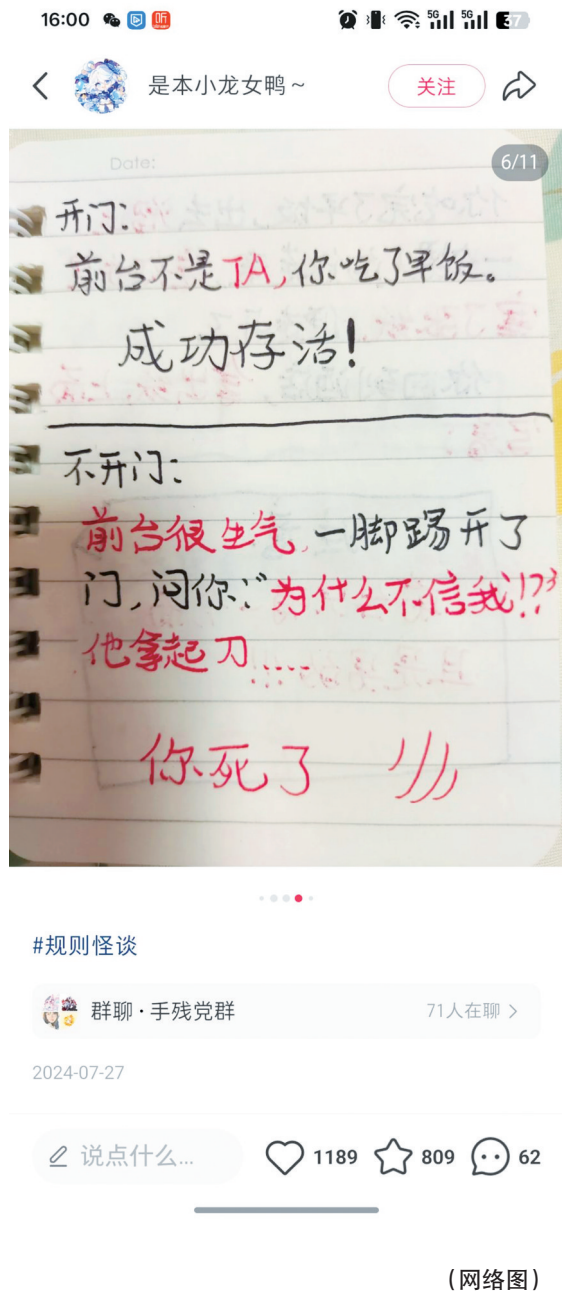 16:00
听
5G
5G
37
是本小龙女鸭～
关注
Date:
6/11
开门:
前台不是TA,你吃了早饭。
成功存活!
不开门:
前台很生气,一脚踢开了
门,问你:“为什么不信我!??”
他拿起刀......
你死了
#规则怪谈
群聊·手残党群
71人在聊
2024-07-27
说点什么...
1189
809
62
(网络图)